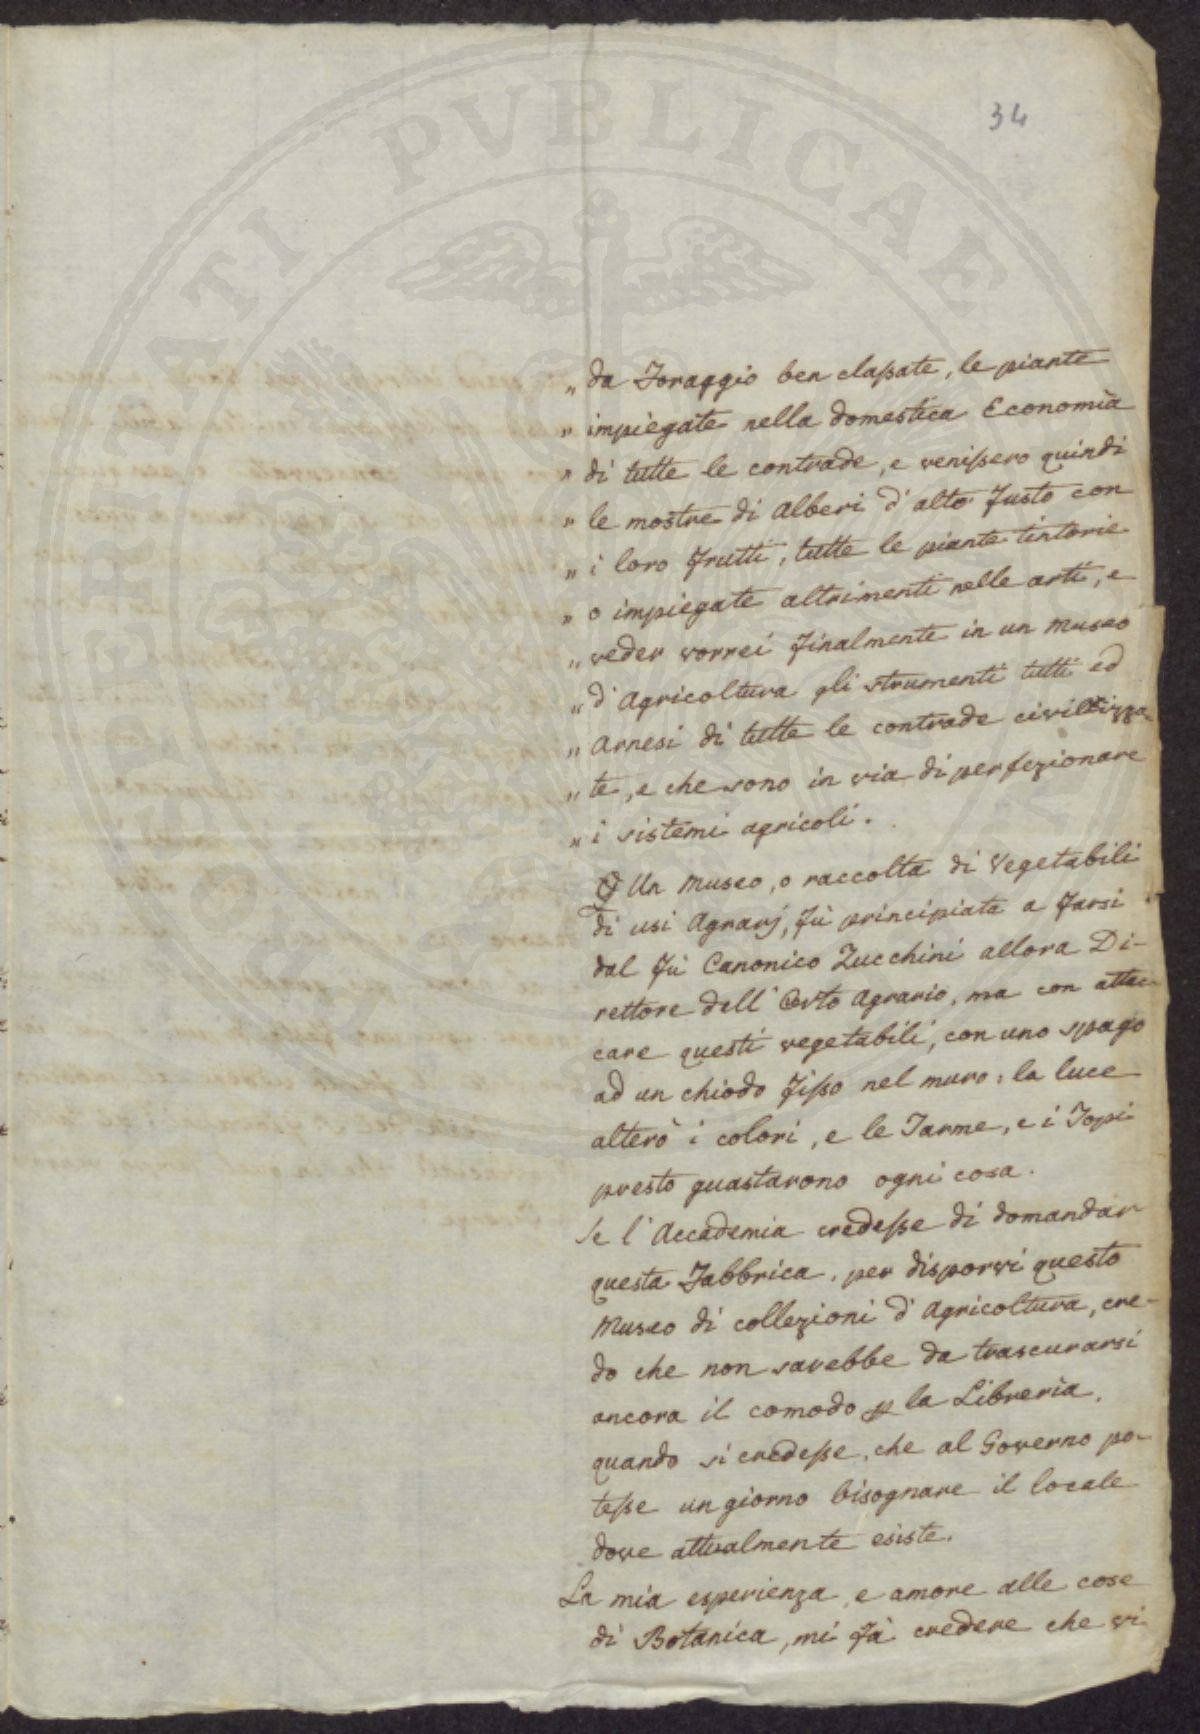 34
„ da Foraggio ben claſsate, le piante
„ impiegate nella domestica Economia
„ di tutte le contrade, e veniſsero quindi
„ le mostre di Alberi d'alto fusto con
„ i loro frutti, tutte le piante tintorie
„ o impiegate altrimenti nelle arti, e
„ veder vorrei finalmente in un museo
„ d'Agricoltura gli strumenti tutti ed
„ Arnesi di tutte le contrade civilizza-
„ te, e che sono in via di perfezionare
„ i sistemi agricoli.
Un museo, o raccolta di Vegetabili
di usi Agrarj, fù principiata a farsi
dal fù Canonico Zucchini allora Di-
rettore dell'Orto Agrario, ma con attac-
care questi vegetabili, con uno spago
ad un chiodo fiſso nel muro: la luce
alterò i colori, e le Tarme, e i Topi
presto guastarono ogni cosa.
Se l'Accademia credeſse di domandar
questa Fabbrica, per disporvi questo
Museo di collezioni d'Agricoltura, cre-
do che non sarebbe da trascurarsi
ancora il comodo p la Libreria,
quando si credeſse, che al Governo po-
teſse un giorno bisognare il locale
dove attualmente esiste.
La mia esperienza, e amore alle cose
di Botanica, mi fà credere che vi
PROSPERITATI PVBLICAE